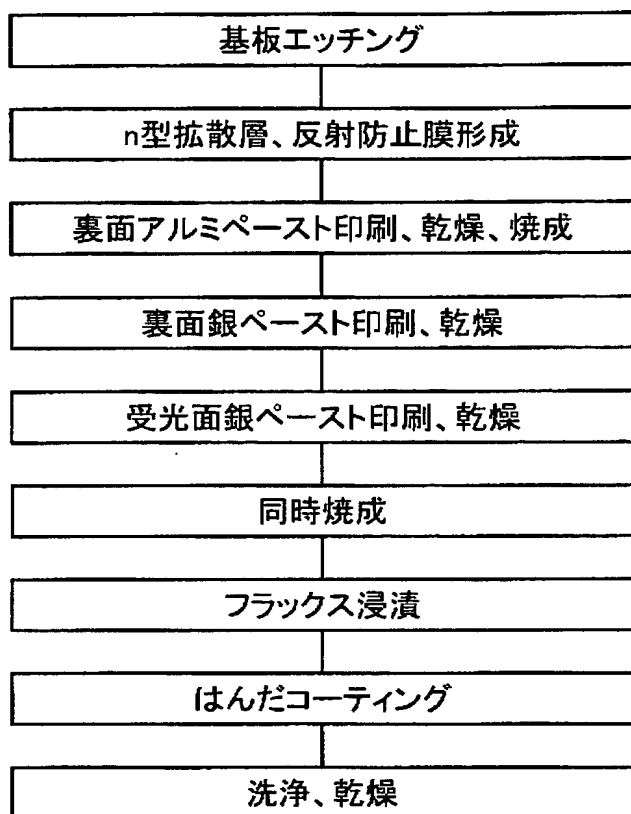 基板エッチング
n型拡散層、反射防止膜形成
裏面アルミペースト印刷、乾燥、焼成
裏面銀ペースト印刷、乾燥
受光面銀ペースト印刷、乾燥
同時焼成
フラックス浸漬
はんだコーティング
洗浄、乾燥